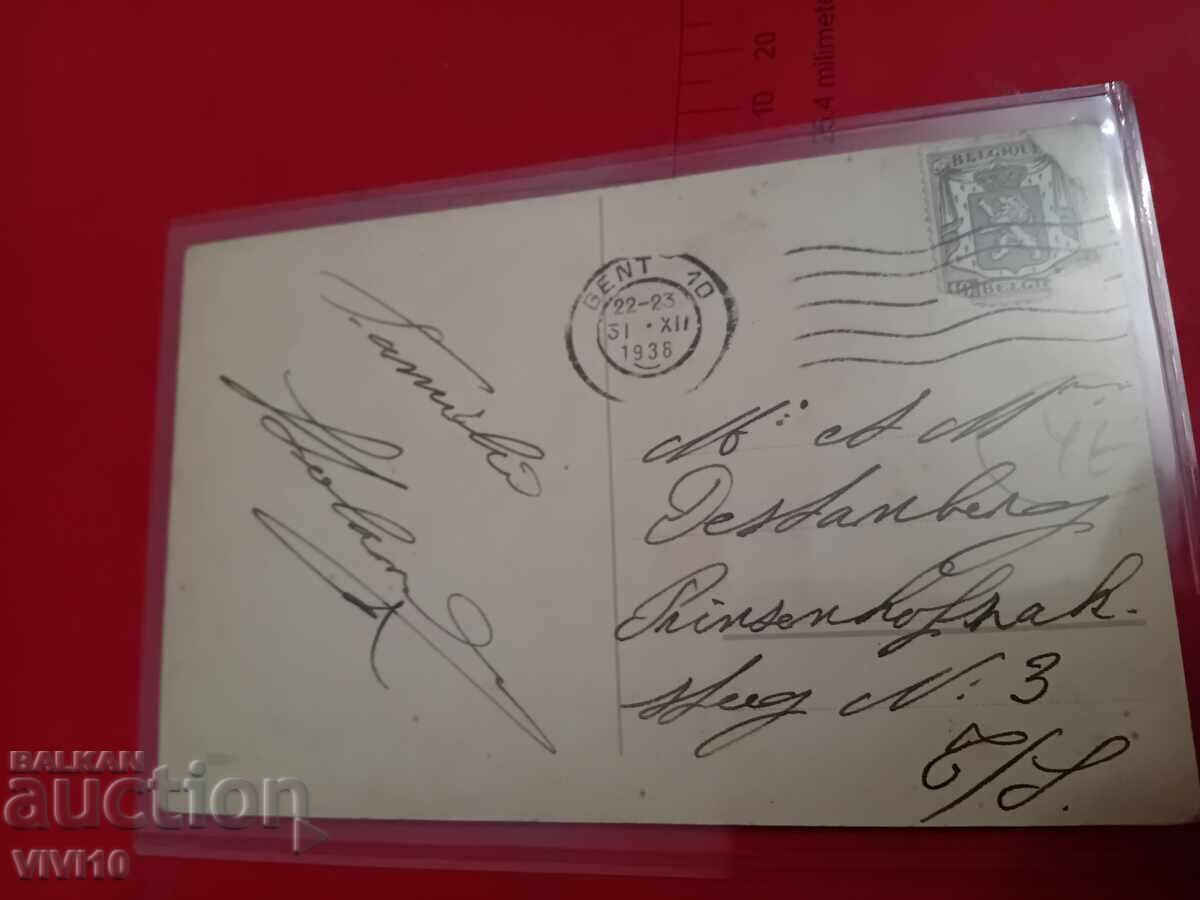 10 20
25.4 milimete
BELGIQUE
BELGIE
GENT 10
22-23
31 · XII
1938
Familie
M: A M
Destanberg
Prinsenhofnak.
steeg N: 3
E/S.
BALKAN
auction
VIVI10